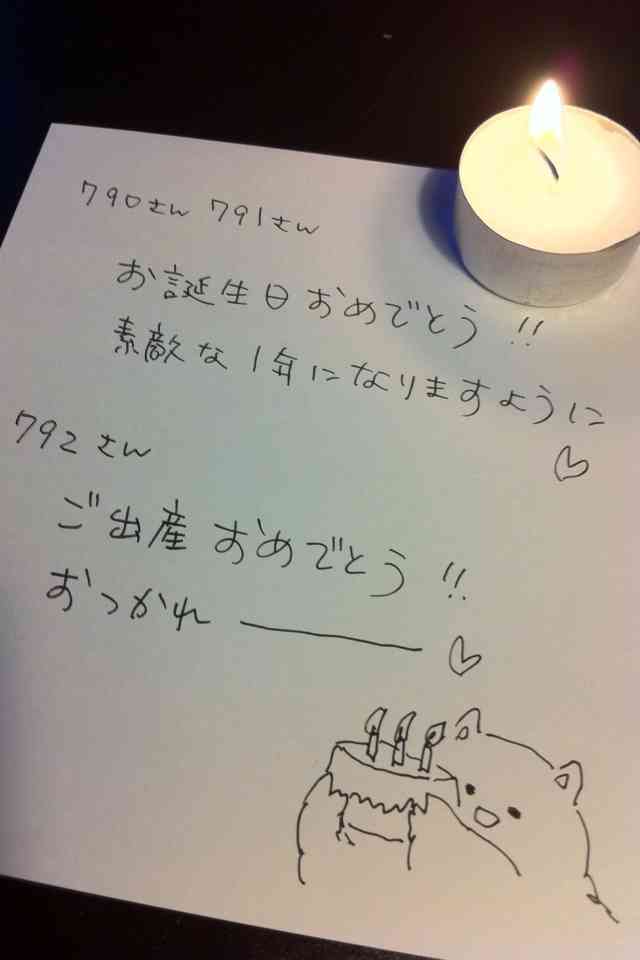 790さん 791さん
お誕生日おめでとう!!
素敵な1年になりますように
♡
792さん
ご出産おめでとう!!
おつかれ――♡